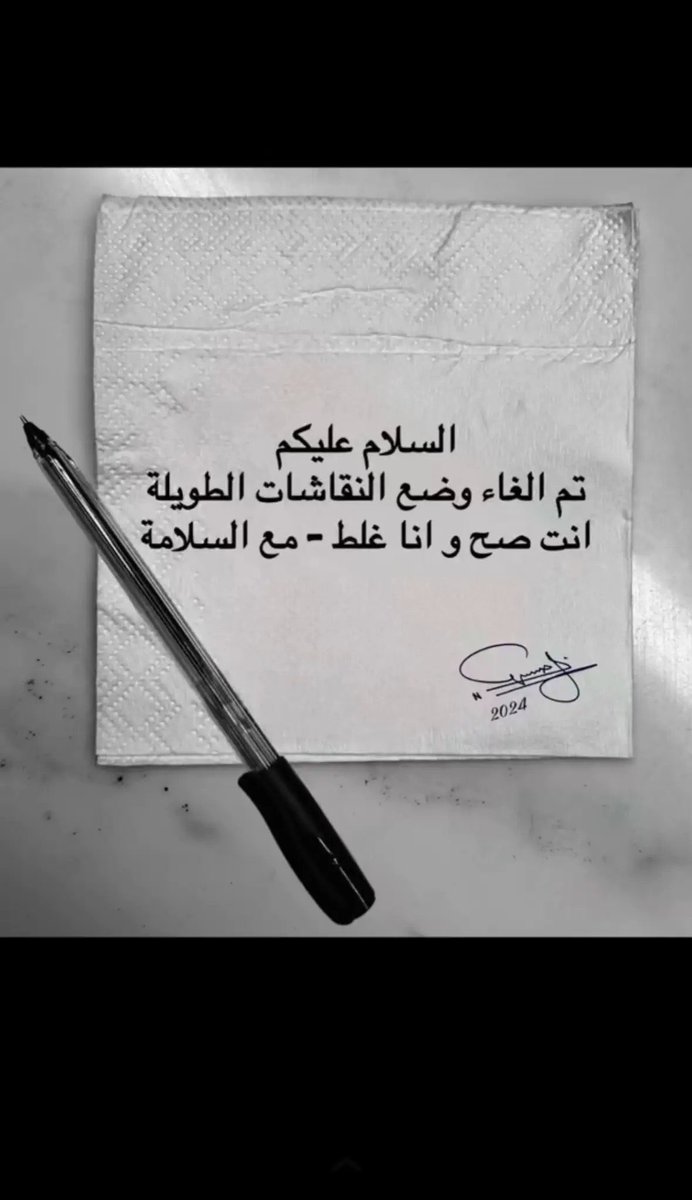 السلام عليكم
تم الغاء وضع النقاشات الطويلة
انت صح و انا غلط - مع السلامة
N
2024